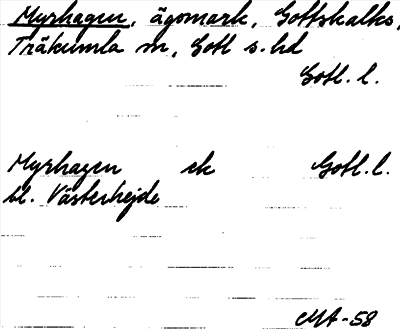 Myrhagen, ägomark, Gottskalks,
Träkumla sn, Gotl s. hd
Gotl. l.
Myrhagen ek Gotl. l.
bl. Västerhejde
MA-58